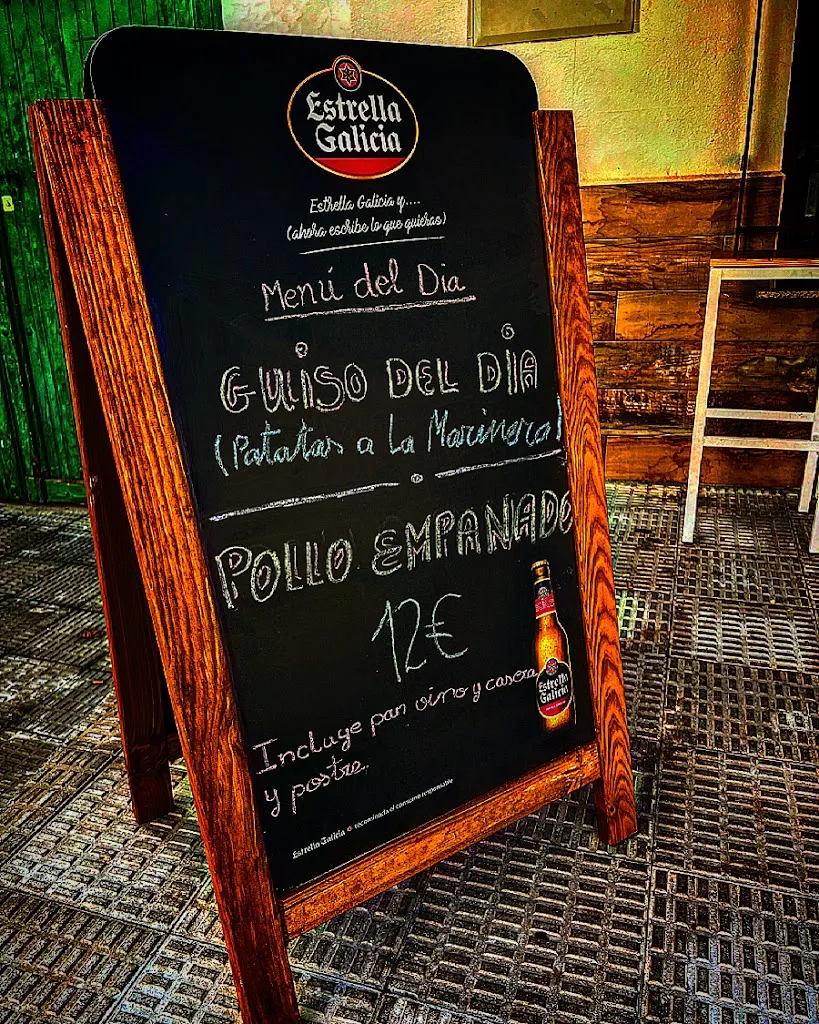 Estrella
Galicia
Estrella Galicia y....
(ahora escribe lo que quieras)
Menú del Dia
GUiSO DEL DiA
(Patatas a La Marinera)
POLLO EMPANADO
12€
Incluye pan vino y casera
y postre.
Estrella
Galicia
Estrella Galicia recomienda el consumo responsable